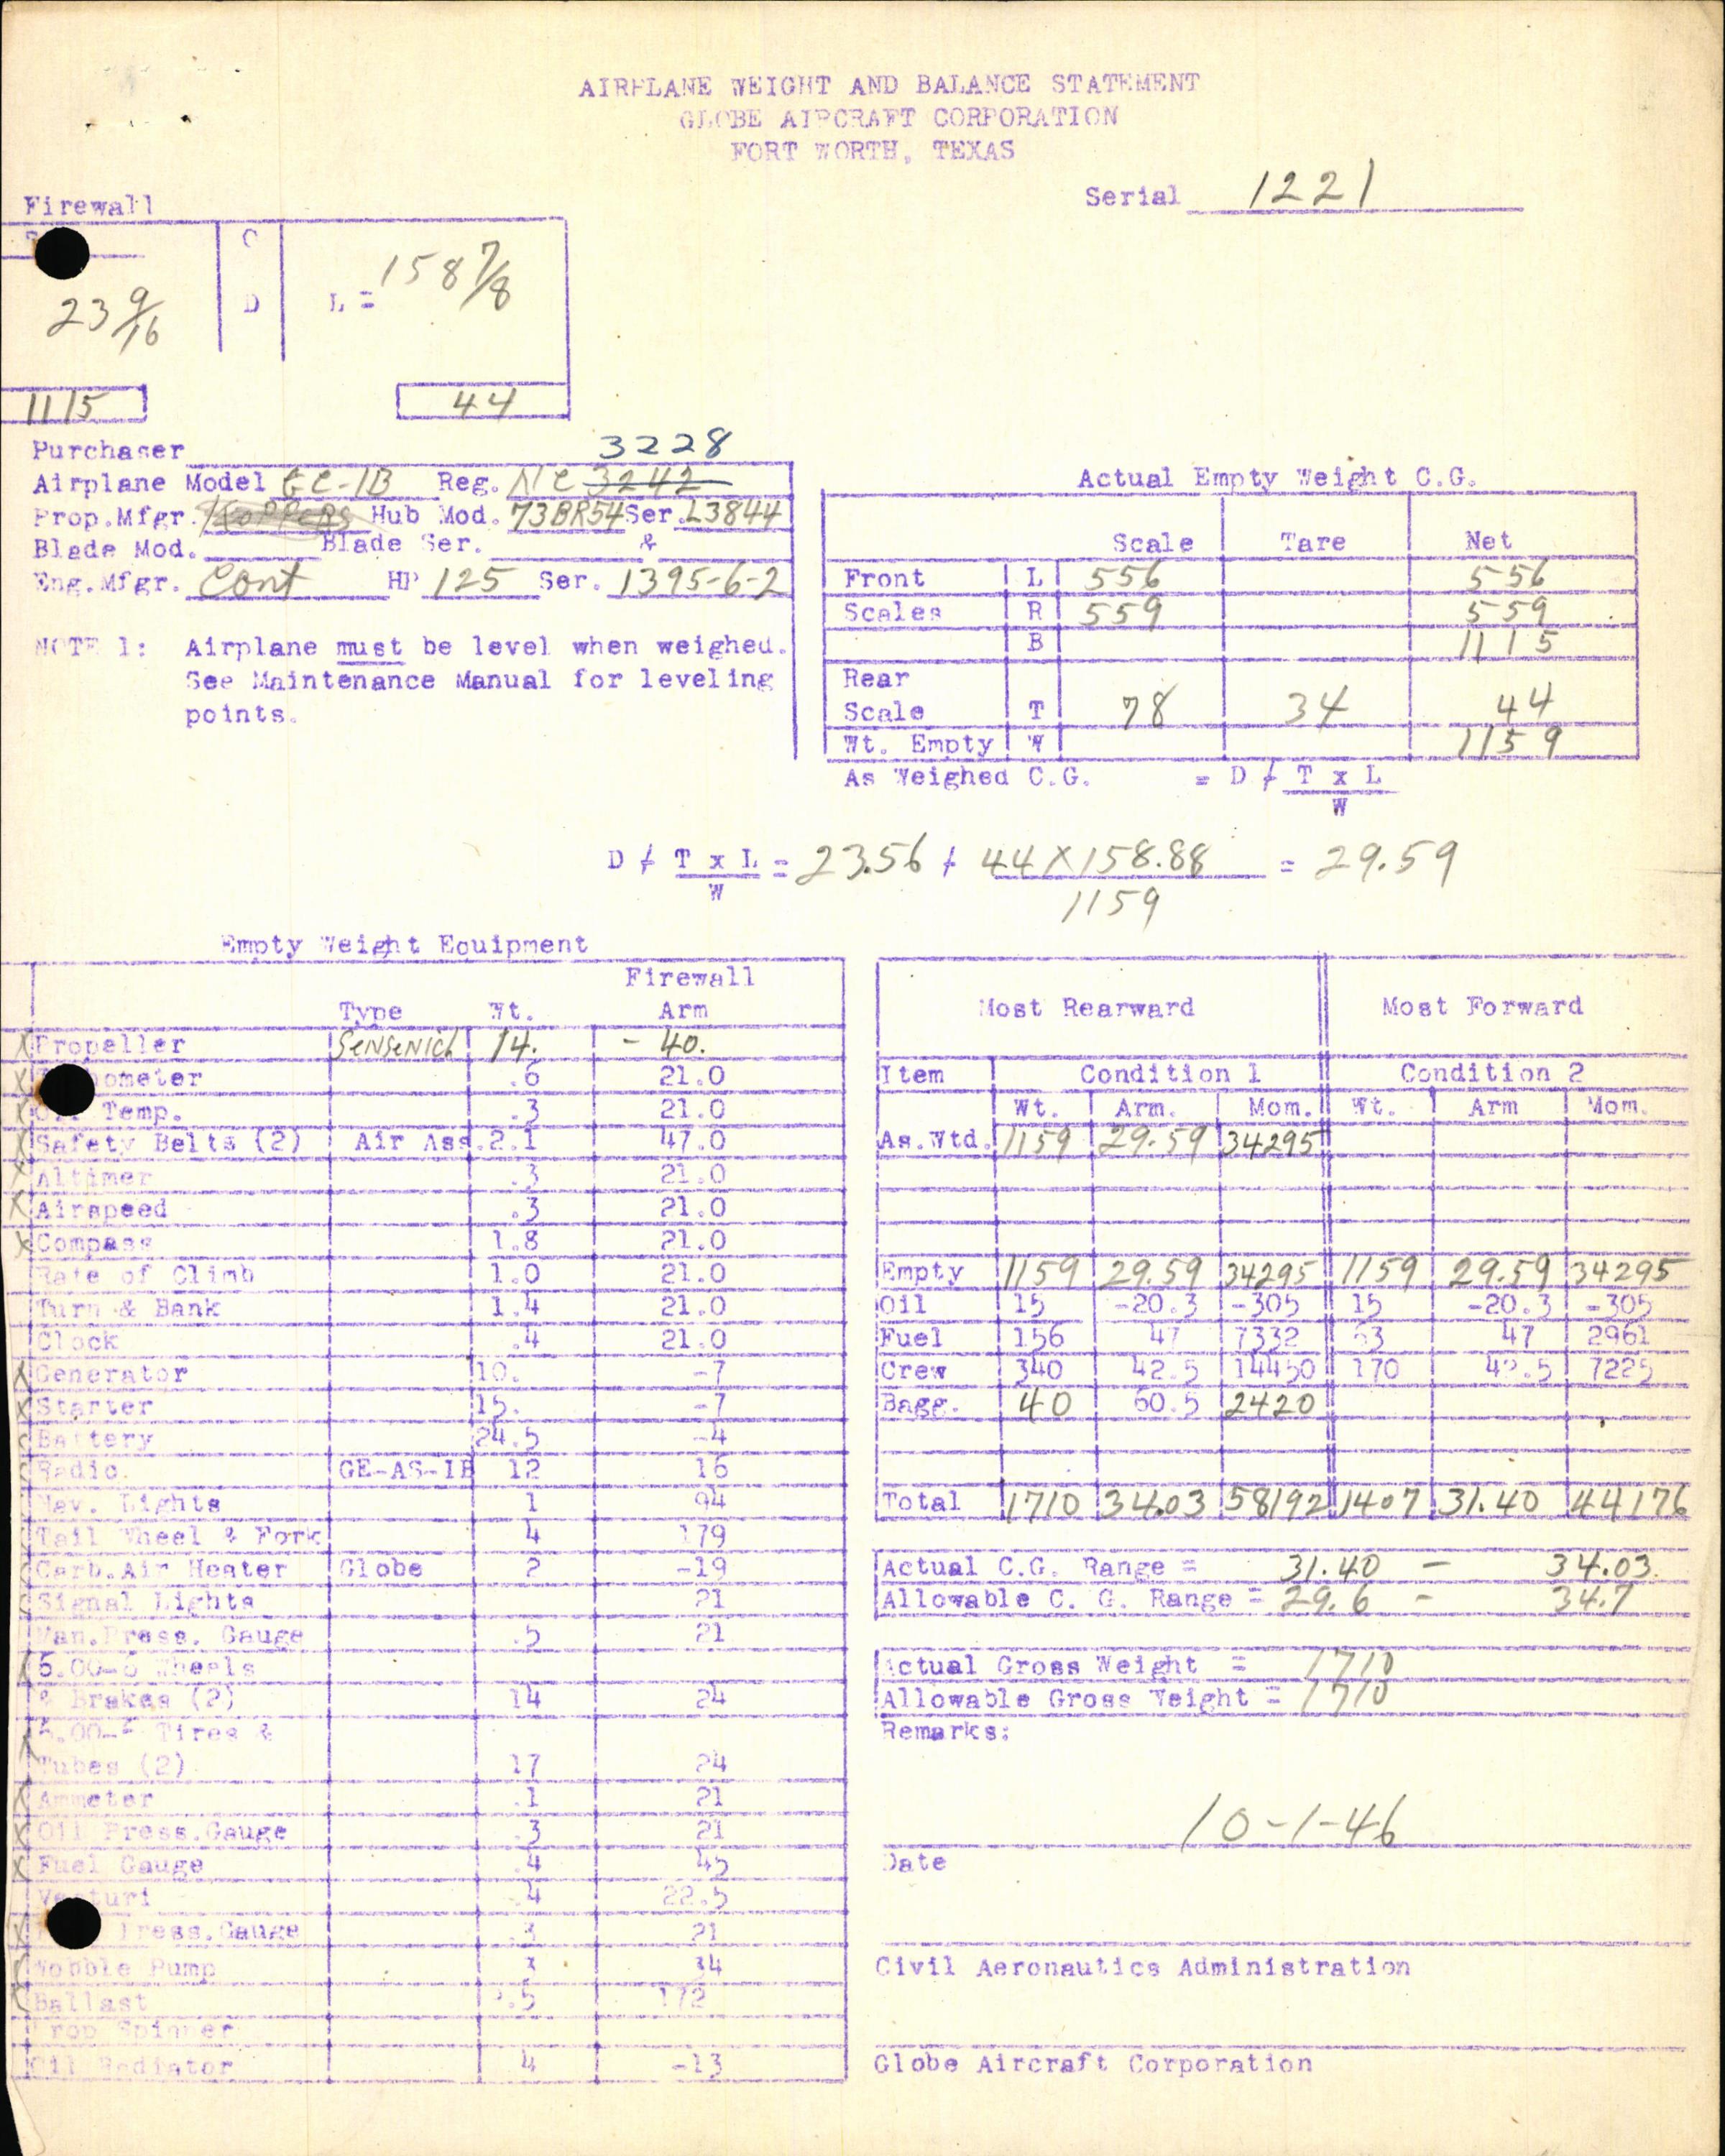 AIRPLANE WEIGHT AND BALANCE STATEMENT
GLOBE AIRCRAFT CORPORATION
FORT WORTH, TEXAS
Serial 1221
Firewall
C
23 9/16 D L = 158 7/8
1115 44
Purchaser
3228
Airplane Model GC-1B Reg. NC 3242
Prop.Mfgr. KOPPERS Hub Mod. 73BR54 Ser. L3844
Blade Mod. Blade Ser. &
Eng.Mfgr. Cont HP 125 Ser. 1395-6-2
NOTE 1: Airplane must be level when weighed.
See Maintenance Manual for leveling
points.
Actual Empty Weight C.G.
Scale Tare Net
Front L 556 556
Scales R 559 559
B 1115
Rear
Scale T 78 34 44
Wt. Empty W 1159
As Weighed C.G. = D / T x L
W
D / T x L = 23.56 / 44 X 158.88 = 29.59
W 1159
Empty Weight Equipment
Firewall
Type Wt. Arm
X Propeller Sensenich 14. - 40.
X ometer .6 21.0
X Temp. .3 21.0
X Safety Belts (2) Air Ass. 2.1 47.0
X Altimer .3 21.0
X Airspeed .3 21.0
X Compass 1.8 21.0
Rate of Climb 1.0 21.0
Turn & Bank 1.4 21.0
Clock .4 21.0
X Generator 10. -7
X Starter 15. -7
Battery 24.5 -4
Radio. GE-AS-1B 12 16
Nav. Lights 1 94
Tail Wheel & Fork 4 179
Carb.Air Heater Globe 2 -19
Signal Lights 21
Man.Press. Gauge .5 21
5.00- Wheels
& Brakes (2) 14 24
Tires &
Tubes (2) 17 24
X Ammeter .1 21
X Oil Press.Gauge .3 21
X Fuel Gauge .4 45
Venturi .4 22.5
X Press.Gauge .3 21
Wobble Pump 34
Ballast 172
Prop Spinner
Oil Radiator 4 -13
Most Rearward Most Forward
Item Condition 1 Condition 2
Wt. Arm. Mom. Wt. Arm Mom.
As.Wtd. 1159 29.59 34295
Empty 1159 29.59 34295 1159 29.59 34295
Oil 15 -20.3 -305 15 -20.3 -305
Fuel 156 47 7332 63 47 2961
Crew 340 42.5 14450 170 42.5 7225
Bagg. 40 60.5 2420
Total 1710 34.03 58192 1407 31.40 44176
Actual C.G. Range = 31.40 - 34.03
Allowable C. G. Range = 29.6 - 34.7
Actual Gross Weight = 1710
Allowable Gross Weight = 1710
Remarks:
10-1-46
Date
Civil Aeronautics Administration
Globe Aircraft Corporation